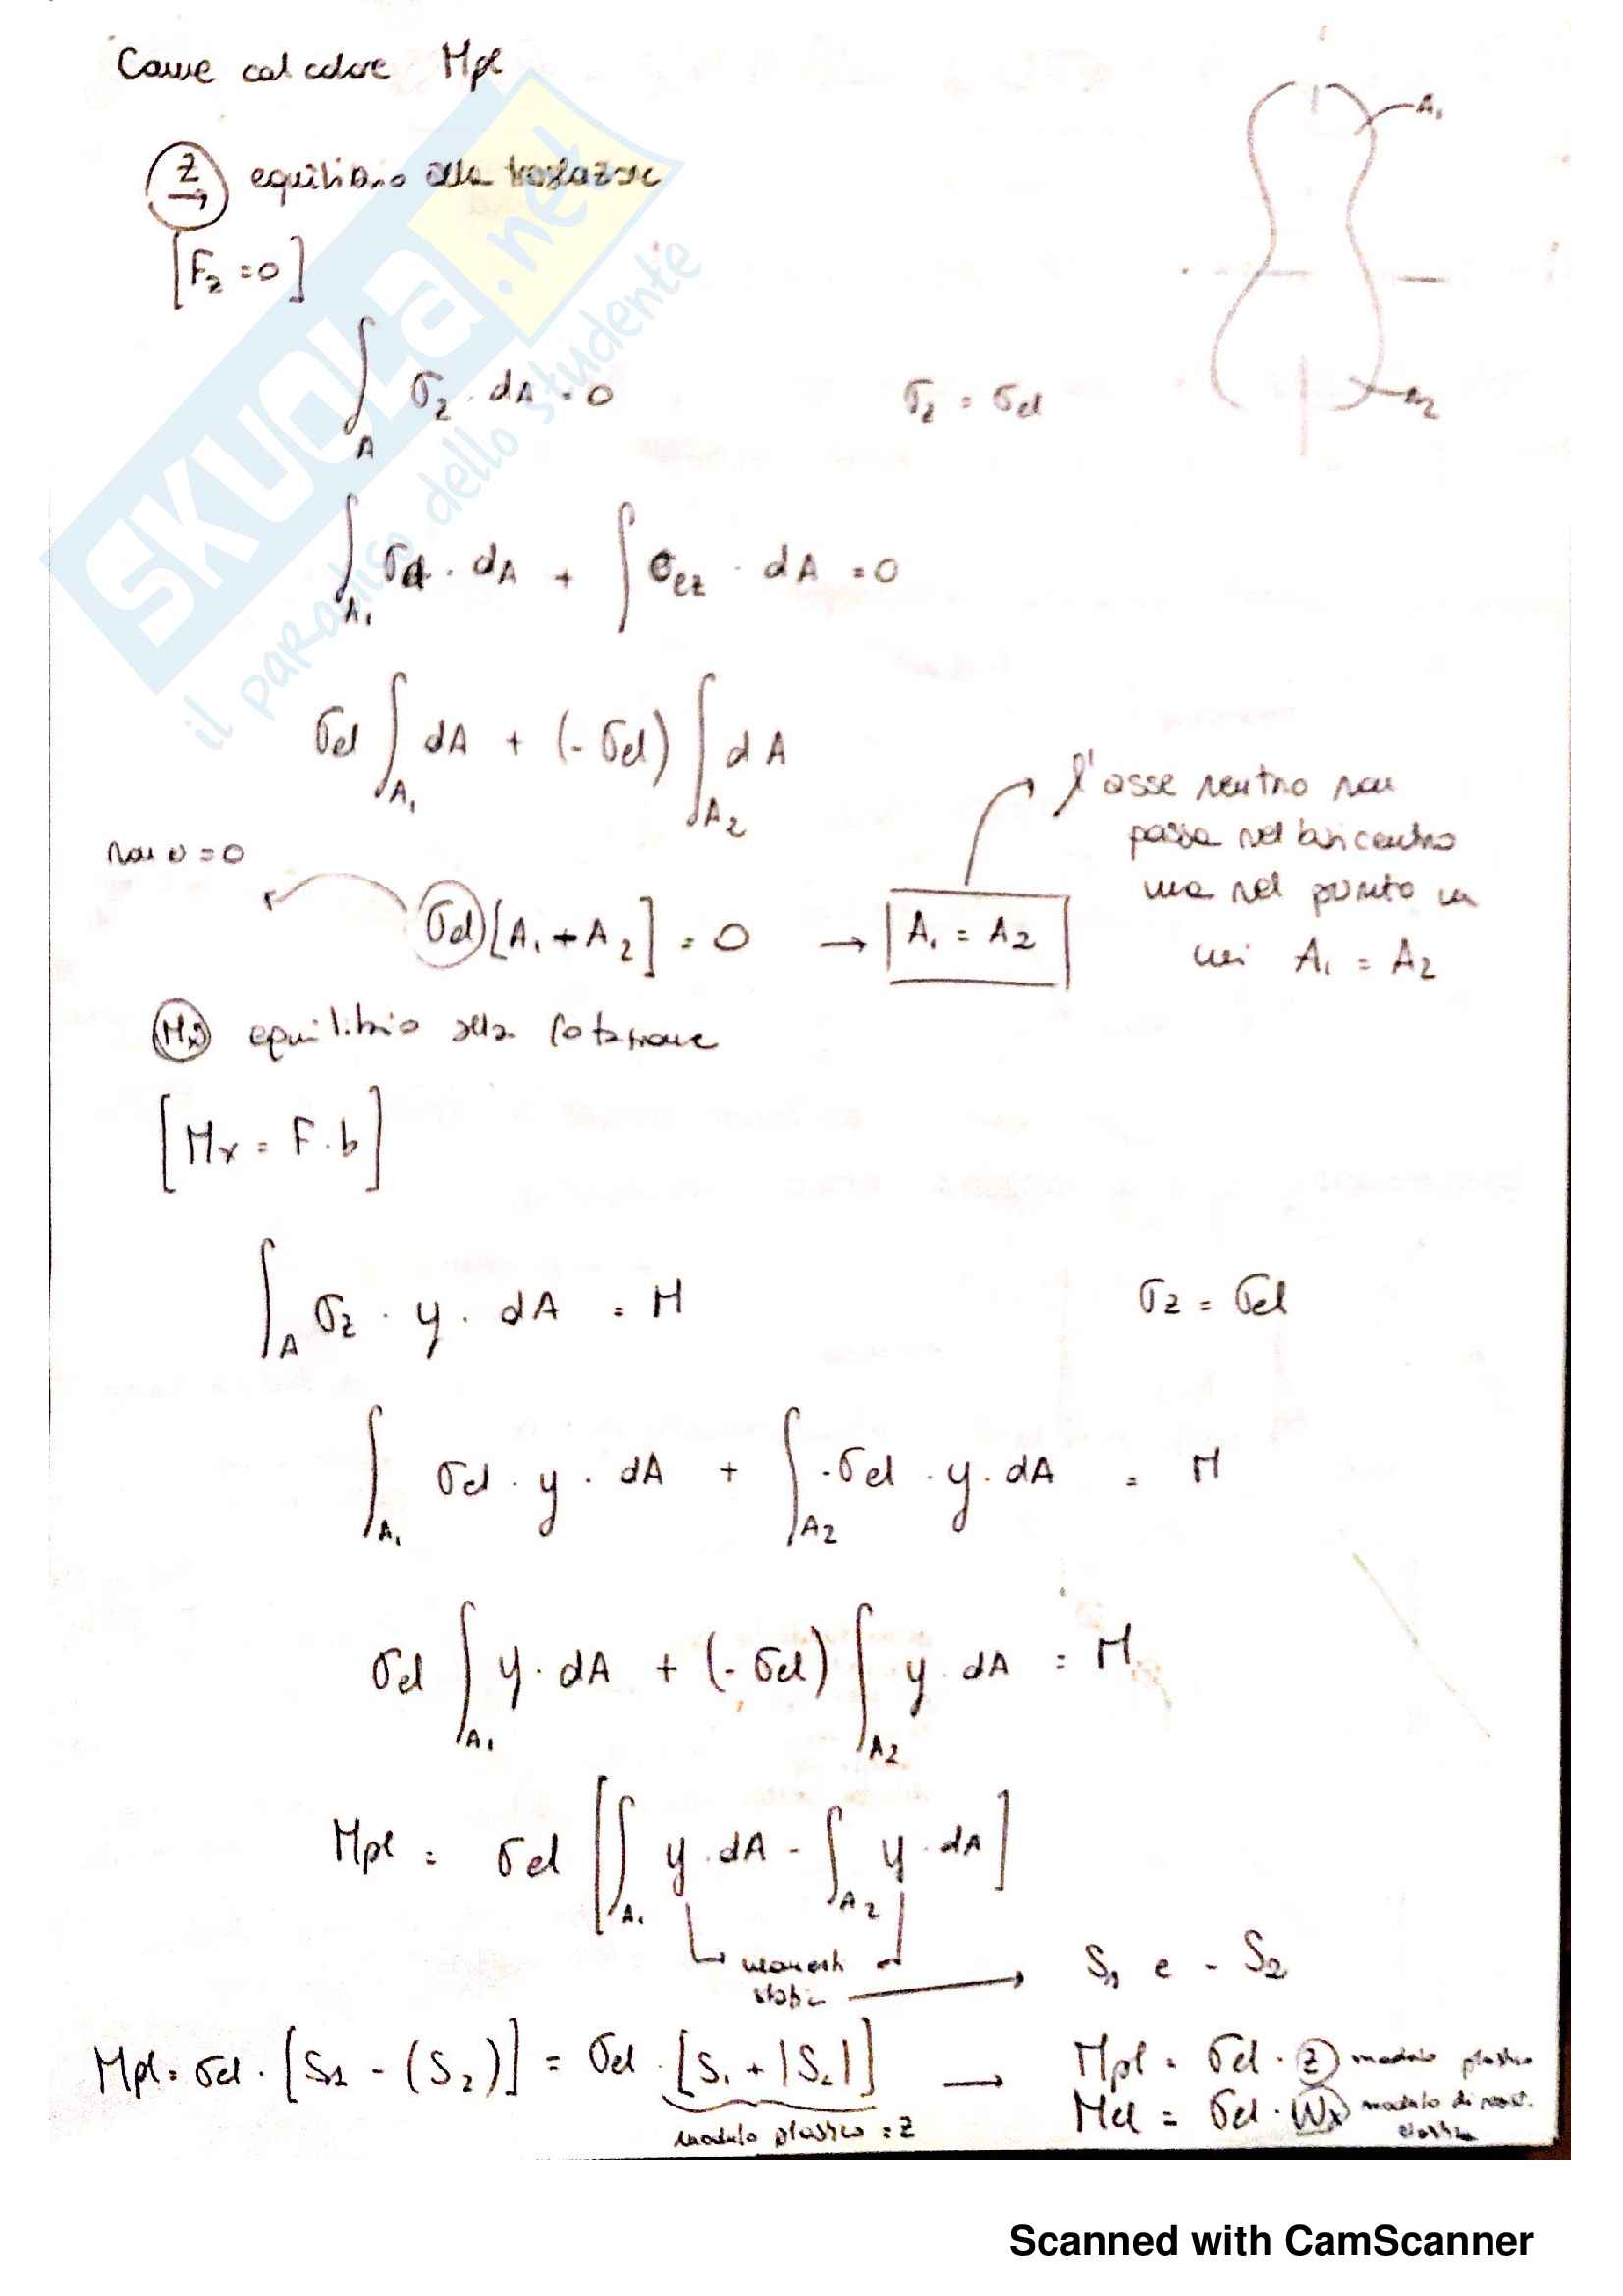 Come calcolare Mpl
A₁
z→ equilibrio alla traslazione
[Fz = 0]
∫A σz · dA = 0
σz = σel
A2
∫A₁ σel · dA + ∫ σez · dA = 0
σel ∫A₁ dA + (- σel) ∫A2 dA
l'asse neutro non
passa nel baricentro
ma nel punto in
cui A₁ = A2
non è = 0
σel [A₁ + A2] = 0 → A₁ = A2
Mx equilibrio alla rotazione
[Mx = F · b]
∫A σz · y · dA = M
σz = σel
∫A₁ σel · y · dA + ∫A2 -σel · y · dA = M
σel ∫A₁ y · dA + (- σel) ∫A2 y · dA = M
Mpl = σel [∫A₁ y · dA - ∫A2 y · dA]
momenti
statici → S1 e - S2
Mpl = σel · [S1 - (S2)] = σel · [S₁ + |S2|] → Mpl = σel · z modulo plastico
modulo plastico = z
Mel = σel · Wx modulo di resist.
elastico
SKUOLA.net
il paradiso dello studente
Scanned with CamScanner